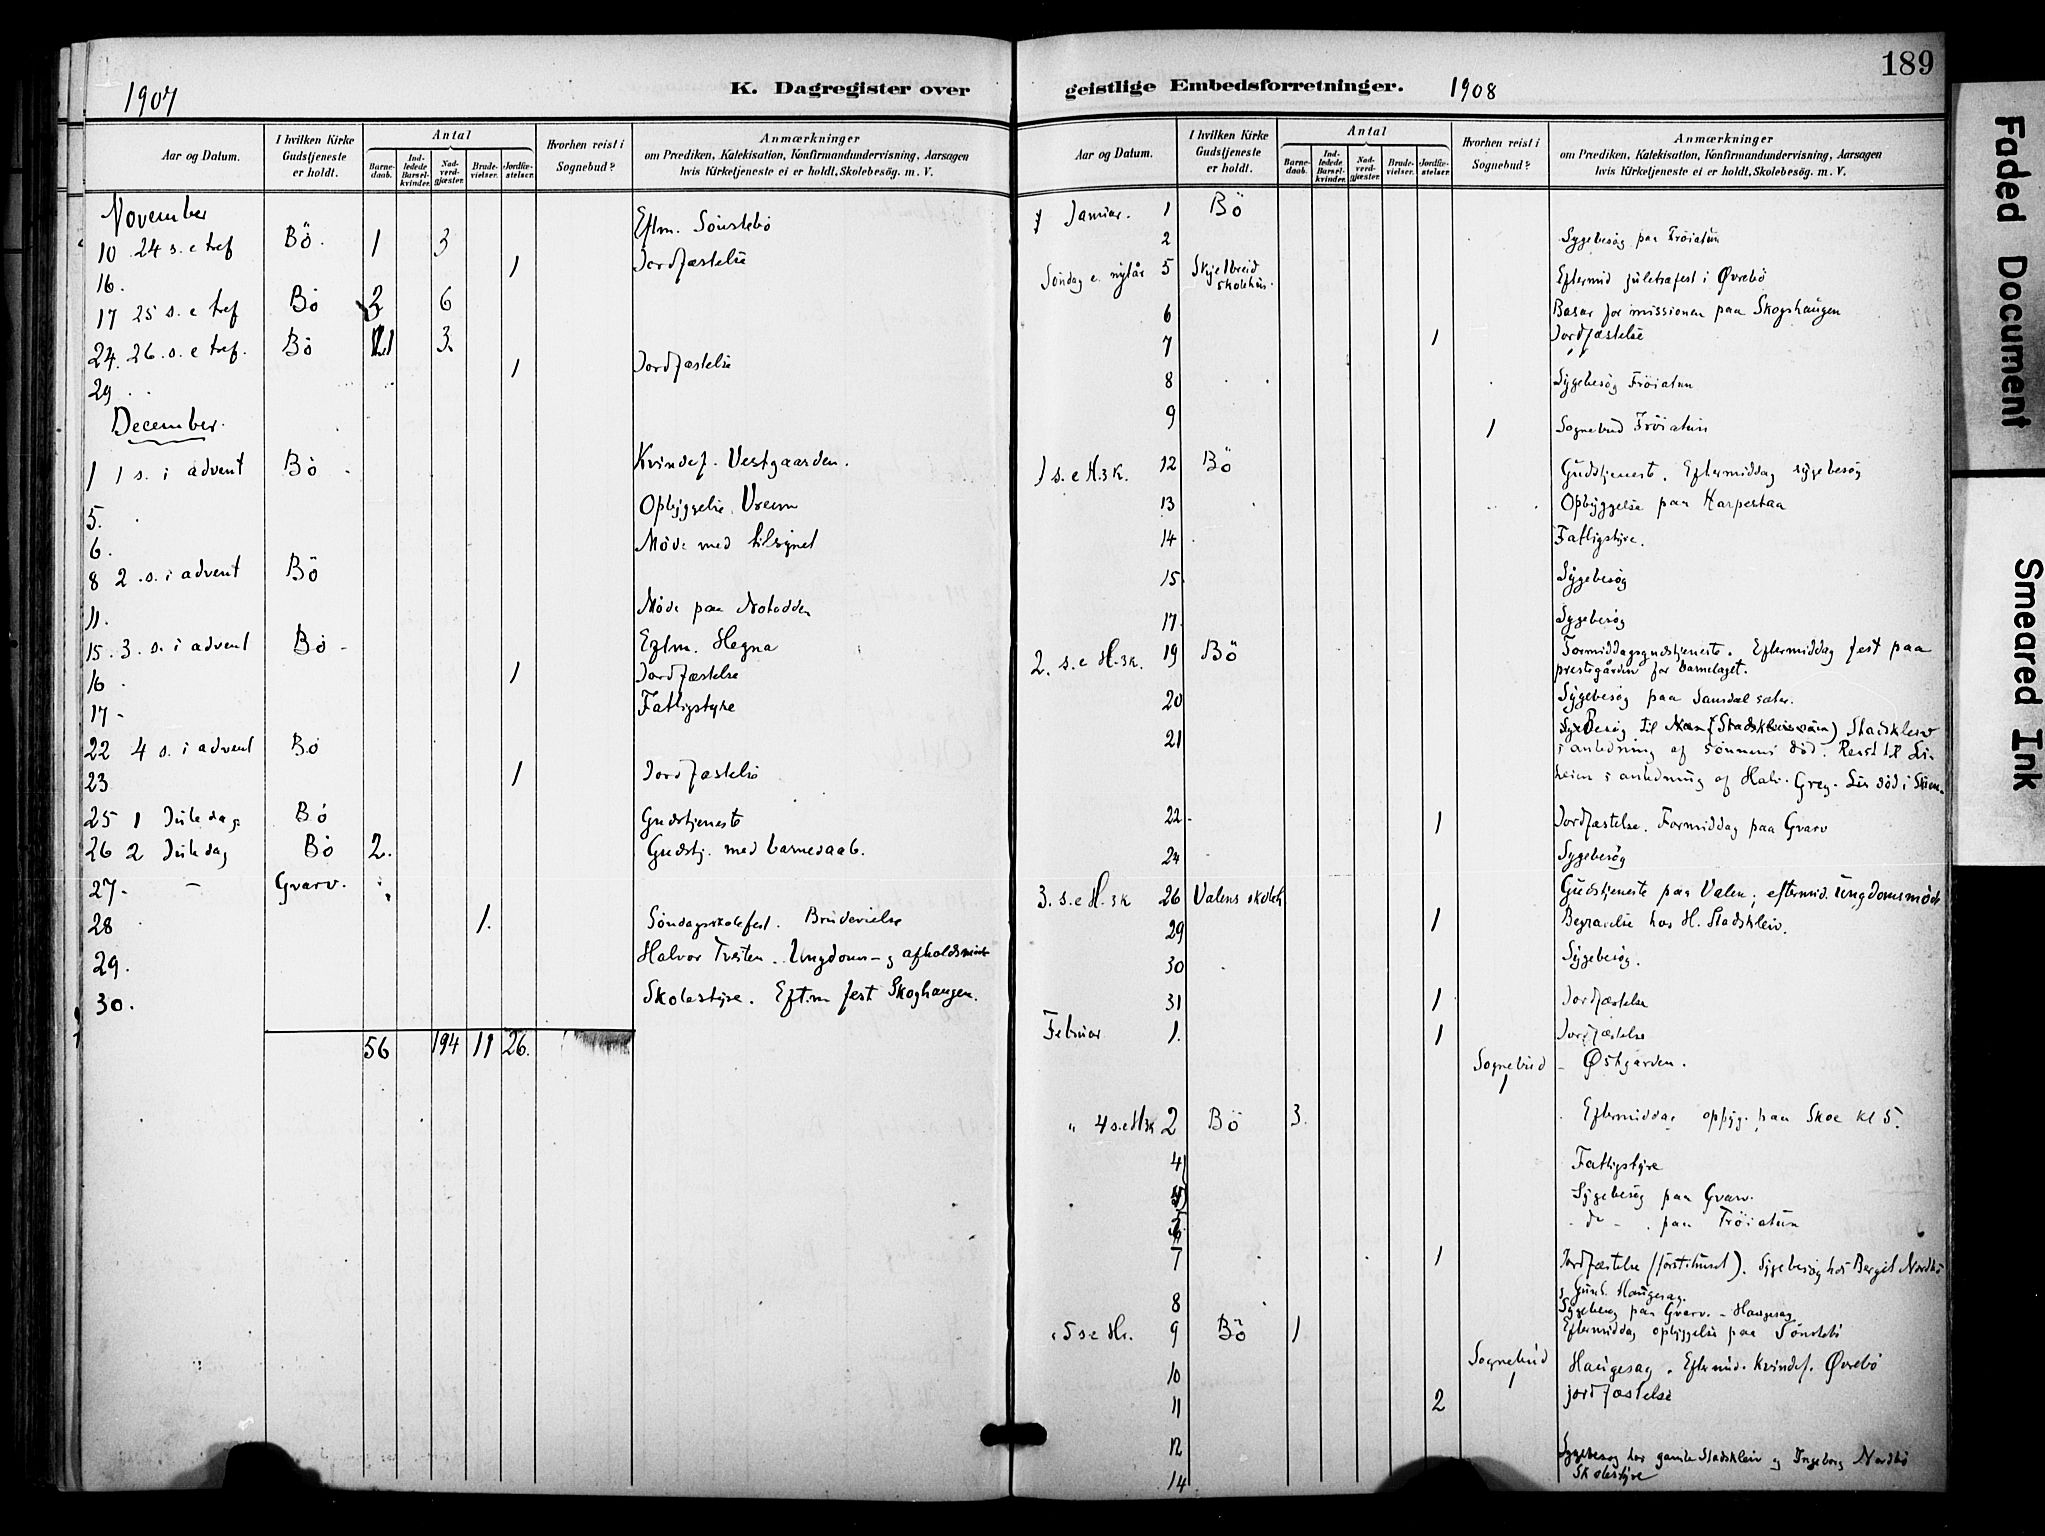 189
1907
K. Dagregister over
Aar og Datum.
I hvilken Kirke Gudstjeneste er holdt.
Antal
Barnedaab.
Indledede Barselkvinder.
Nadverdgjæster.
Brudevielser.
Jordfæstelser.
Hvorhen reist i Sognebud?
Anmærkninger
om Prædiken, Katekisation, Konfirmandundervisning, Aarsagen
hvis Kirketjeneste ei er holdt, Skolebesøg. m. V.
November
10 24 s. e tref Bö. 1 3 Eftm. Sönstebö
16. 1 Jordfæstelse
17 25 s. e tref Bö 2 6
24. 26. s. e tref. Bö 3.
29 1 Jordfæstelse
December
1 1 s. i advent Bö Kvindef. Vestgaarden.
5. Opbyggelse
6. Möde med tilsynet
8 2. s. i advent Bö
11. Möde paa Notodden
15. 3. s. i advent Bö Eftm. Hegna
16 1 Jordfæstelse
17 Fattigstyre
22 4 s. i advent Bö
23 1 Jordfæstelse
25 1 Juledag Bö Gudstjeneste
26 2 Juledag Bö 2. Gudstj. med barnedaab.
27 - Gvarv.
28 1. Söndagsskolefest. Brudevielse
29. Halvor Tveiten. Ungdoms- og afholdsmöte
30. Skolestyre. Eftm fest Skoghaugen.
56 194 11 26.
geistlige Embedsforretninger. 1908
Aar og Datum.
I hvilken Kirke Gudstjeneste er holdt.
Antal
Barnedaab.
Indledede Barselkvinder.
Nadverdgjæster.
Brudevielser.
Jordfæstelser.
Hvorhen reist i Sognebud?
Anmærkninger
om Prædiken, Katekisation, Konfirmandundervisning, Aarsagen
hvis Kirketjeneste ei er holdt, Skolebesøg. m. V.
Januar. 1 Bö
2 Sygebesög paa Fröiatun
Söndag e. nytår 5 Skjelbreid skolehus. Eftermid juletræfest i Øvrebö
6 Basar for missionen paa Skogshaugen
7 1 Jordfæstelse
8 Sygebesög Fröiatun
9 1 Sognebud Fröiatun
1 s. e H.3K. 12 Bö Gudstjeneste. Eftermiddag sygebesög
13 Opbyggelse paa Harpestaa
14 Fattigstyre.
15 Sygebesög
17. Sygebesög
2. s. e H.3K. 19 Bö Formiddagsgudstjeneste. Eftermiddag fest paa
prestegården for barnelaget.
20 Sygebesög paa
21 Sygebesög til Stadskleiv
i anledning af sönnens död. Reist til Li-
heim i anledning af Halv. Greg. Lis död i
22 1 Jordfæstelse. Formiddag paa Gvarv
24 Sygebesög
3. s. e H. 3K 26 Valens skoleh. Gudstjeneste paa Valen; eftermid. ungdomsmöde
29 1 Begravelse hos H. Stadskleiv.
30 Sygebesög.
31 1 Jordfæstelse
Februar 1. 1 Jordfæstelse
Sognebud 1 - Østgården.
" 4 s. e H3K 2 Bö 3. Eftermiddag opbyg. paa Skoe kl 5.
4 Fattigstyre
Sygebesög paa Gvarv.
- do - paa Fröiatun
7 1 Jordfæstelse. Sygebesög hos Bergit Nordbö
g Gunh. Haugesag.
8 Sygebesög paa Gvarv. - Haugesag
5 s e H. 9 Bö 1 Eftermiddag opbyggelse paa Sönstebö
10 Sognebud 1 Haugesag. Eftermid. kvindef. Øvrebö
11 2 jordfæstelse
12 Sygebesög hos gamle Stadskleiv g Ingeborg Nordbö
14 Skolestyre
Faded Document
Smeared Ink